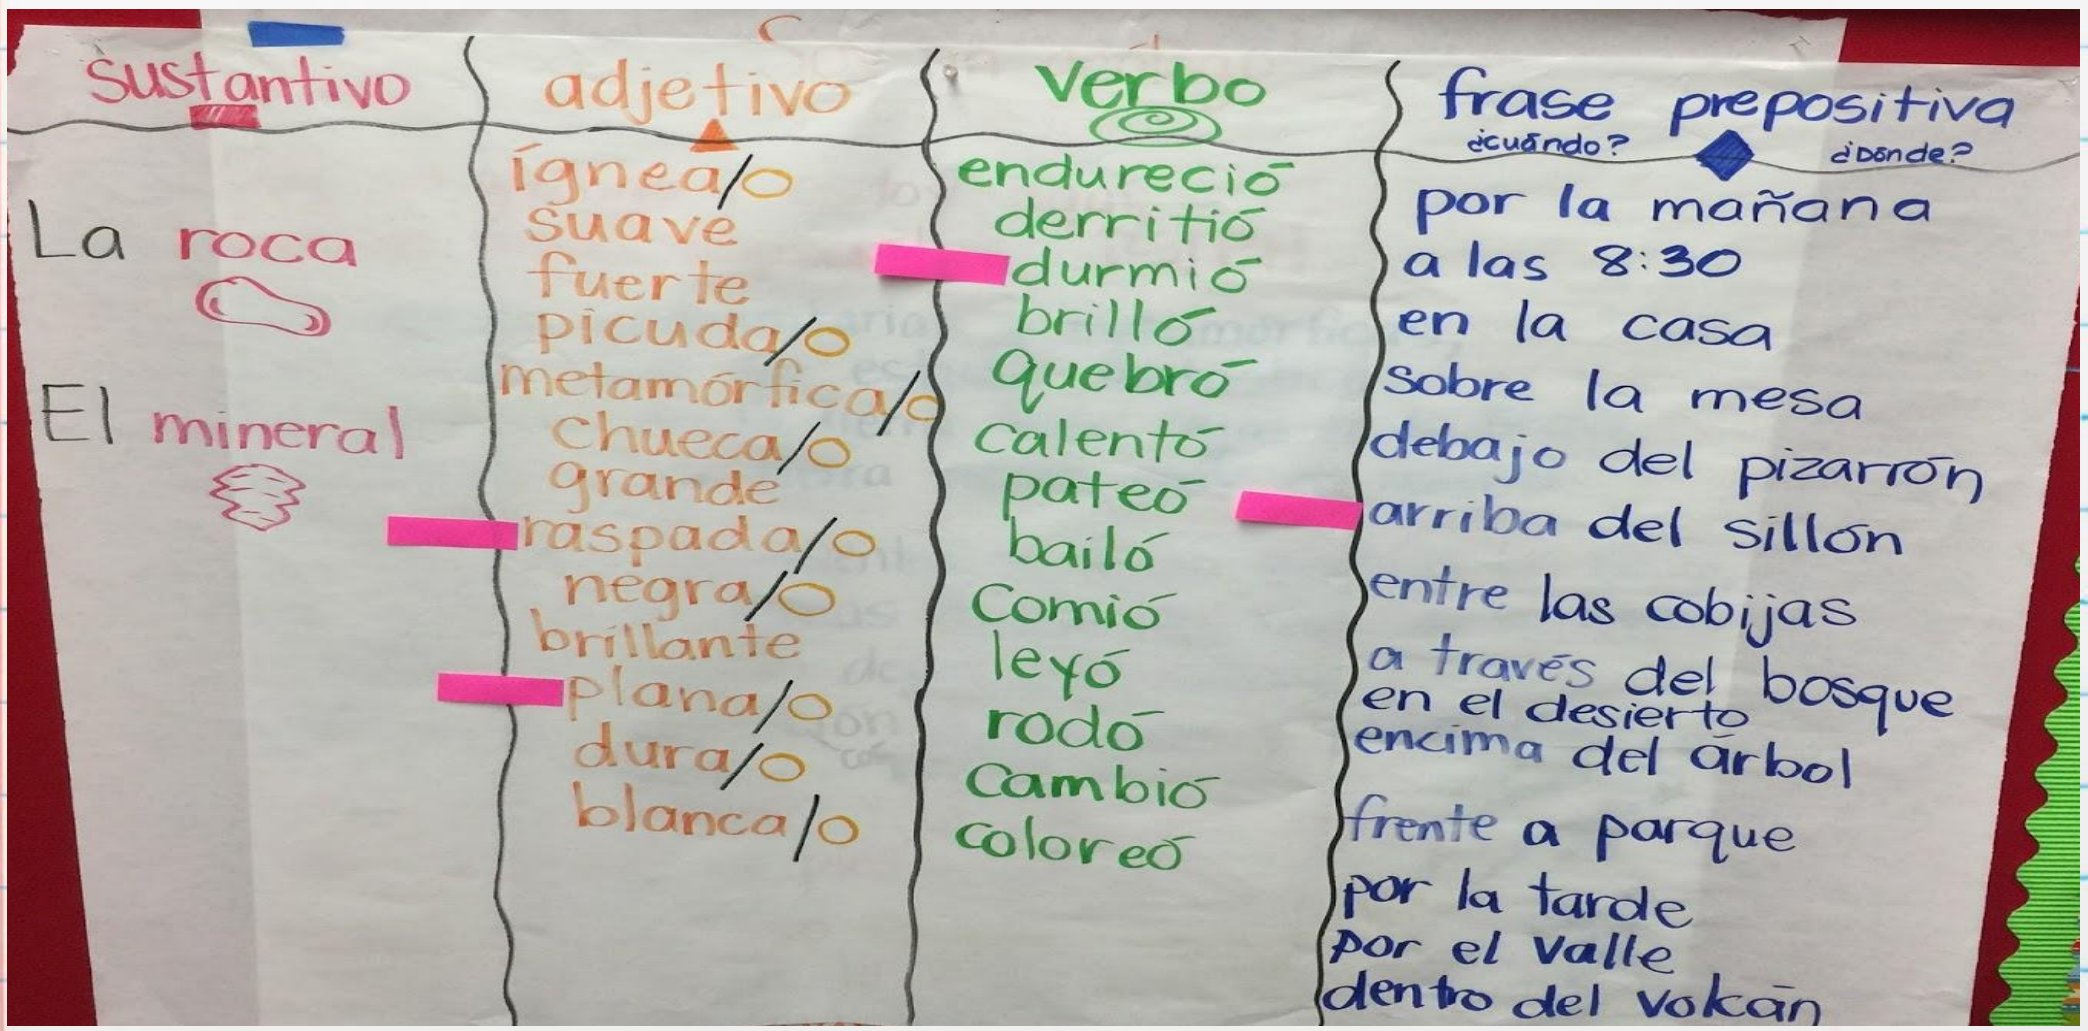 sustantivo
La roca
El mineral
adjetivo
ígnea/o
suave
fuerte
picuda/o
metamórfica/o
chueca/o
grande
raspada/o
negra/o
brillante
plana/o
dura/o
blanca/o
verbo
endureció
derritió
durmió
brilló
quebró
calentó
pateó
bailó
comió
leyó
rodó
cambió
coloreó
frase prepositiva
¿cuándo? ¿Dónde?
por la mañana
a las 8:30
en la casa
sobre la mesa
debajo del pizarrón
arriba del sillón
entre las cobijas
a través del bosque
en el desierto
encima del árbol
frente a parque
por la tarde
por el valle
dentro del volcán